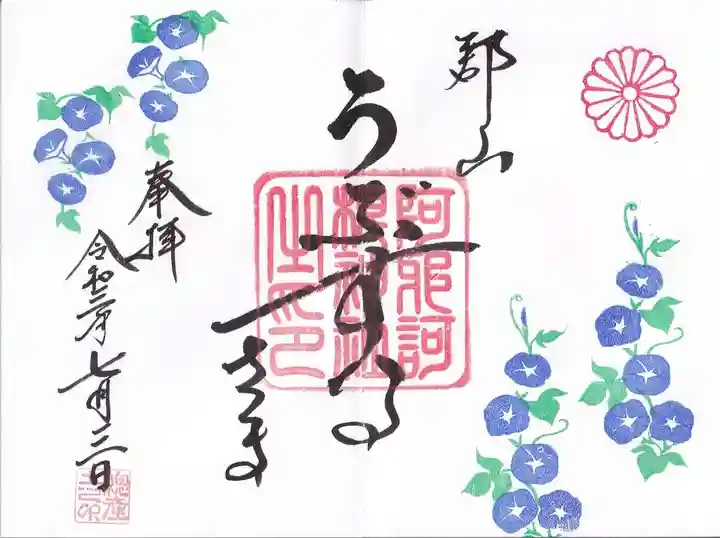 郡山
うぶすな
さま
阿邪訶
根神社
之印
奉拝
令和二年七月三日